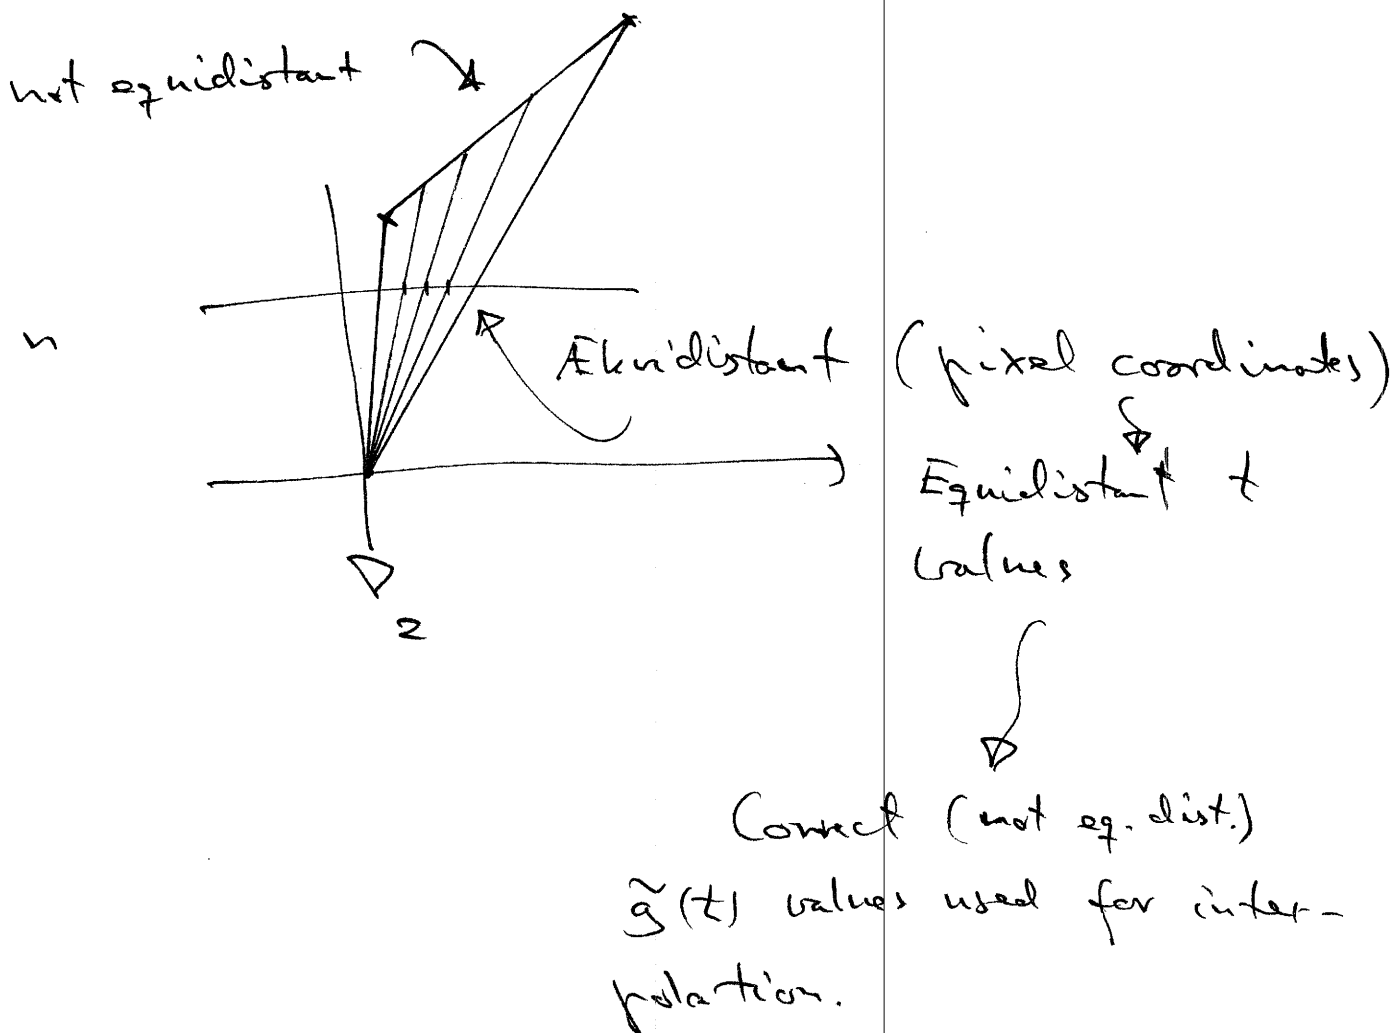 not equidistant
n
Ækvidistant (pixel coordinates)
Equidistant t
values
z
Correct (not eq. dist.)
g̃(t) values used for inter-
polation.